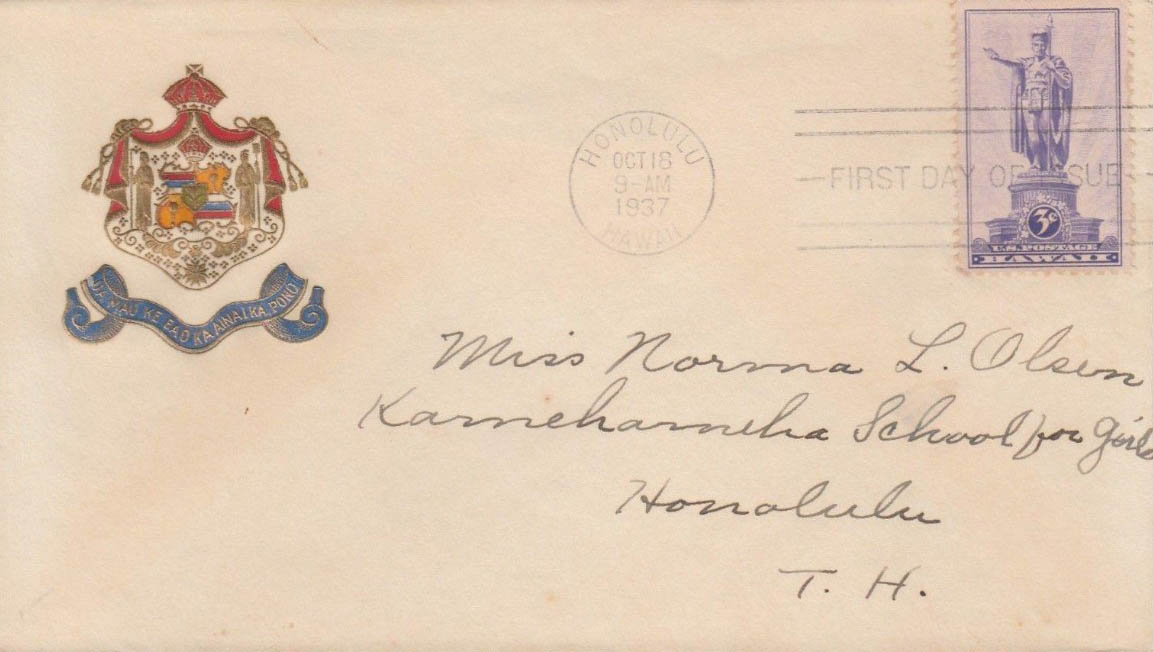 UA MAU KE EA O KA AINA I KA PONO
HONOLULU
OCT 18
9-AM
1937
HAWAII
FIRST DAY OF ISSUE
3¢
U.S. POSTAGE
HAWAII
Miss Norma L. Olsen
Kamehameha School for Girls
Honolulu
T. H.